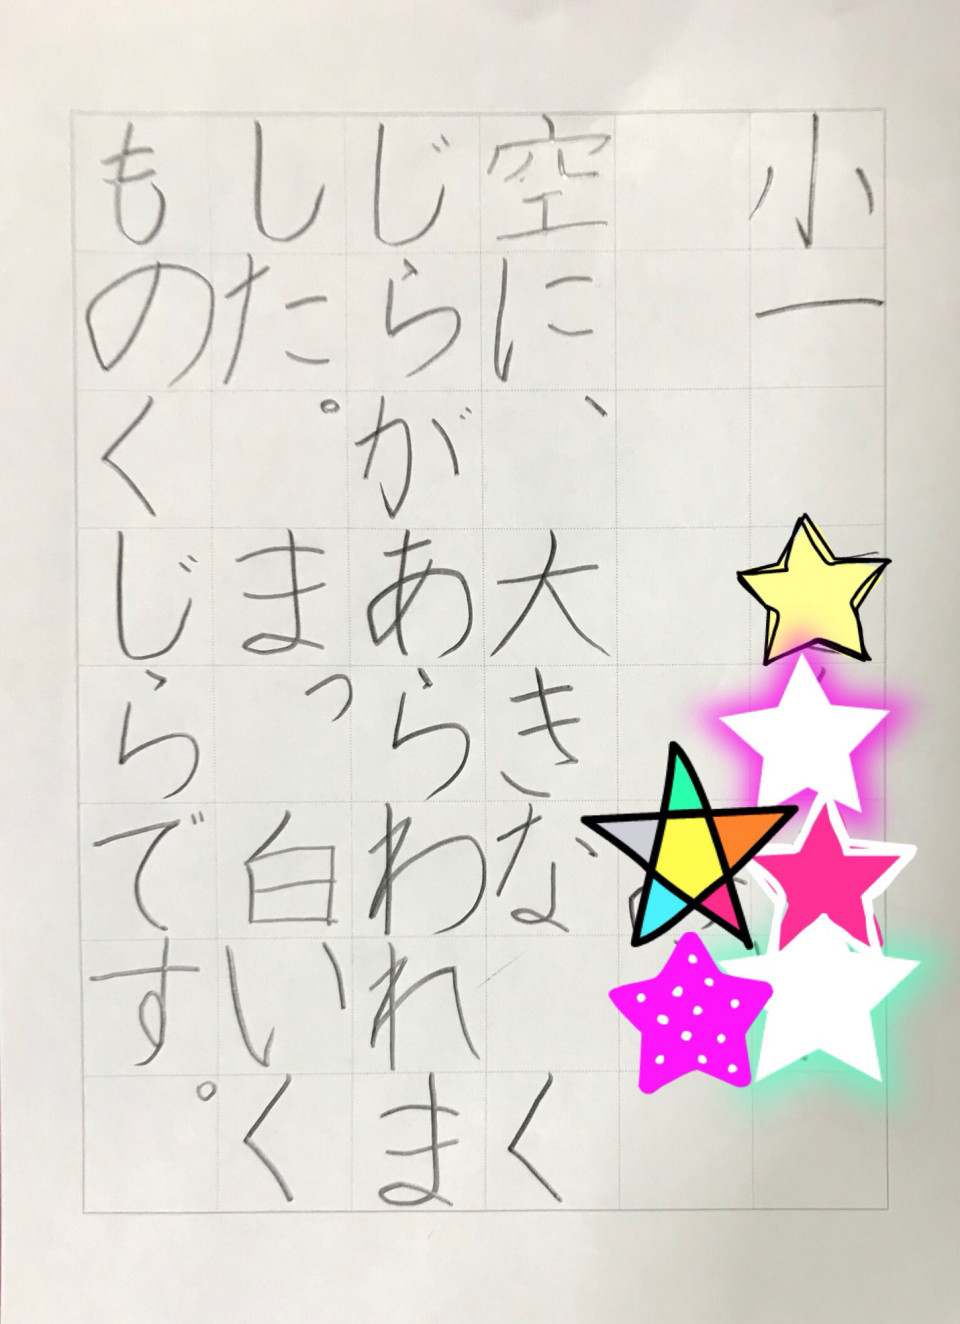 小一
空に、大きな く
じらが あらわれま
した。まっ白いく
ものくじらです。